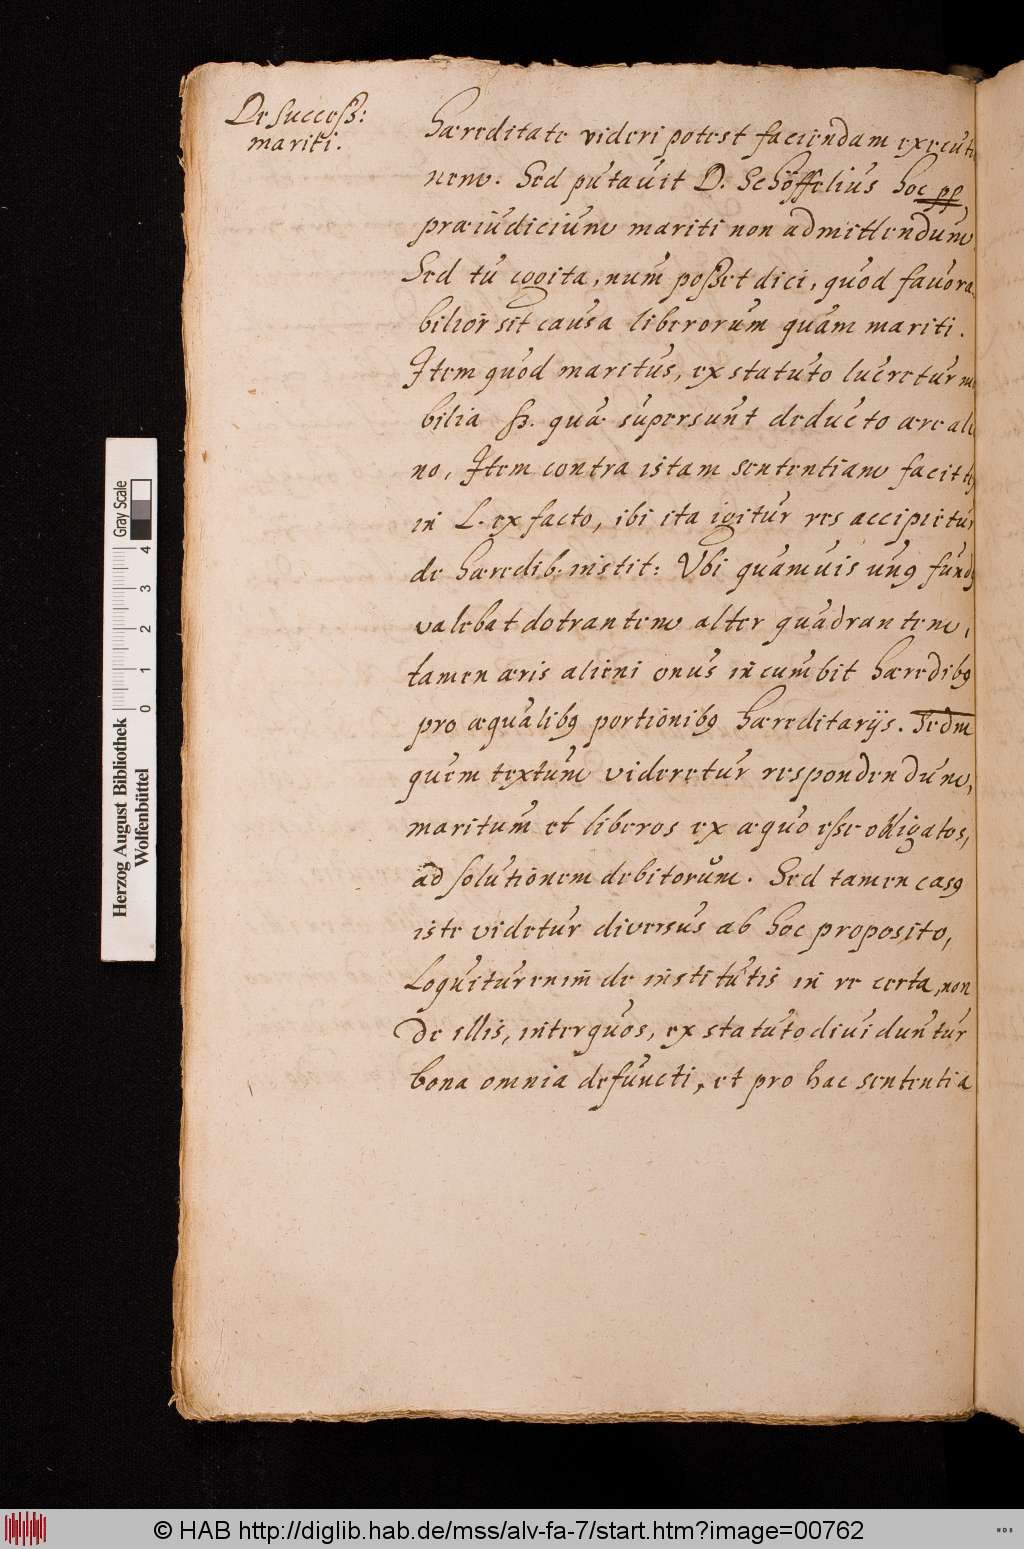 De Success:
mariti.
haereditate videri potest faciendam executi
nem. Sed putavit D. Schöffelius hoc pp
praeiudicium mariti non admittendum
Sed tu cogita, num posset dici, quod favora
bilior sit causa liberorum quam mariti.
Item quod maritus, ex statuto lucretur m
bilia ß. quae supersunt deducto aere ali
no, Item contra istam sententiam facit
in L. ex facto, ibi ita igitur res accipietur
de haeredib. instit: Vbi quamuis unq fundq
valebat dotrantem alter quadrantem,
tamen aeris alieni onus incumbit haeredibq
pro aequalibq portionibq haereditarijs.
quem textum videretur respondendum,
maritum et liberos ex aequo esse obligatos,
ad solutionem debitorum. Sed tamen casq
iste videtur diversus ab hoc proposito,
Loquitur enim de institutis in re certa, non
De illis, inter quos, ex statuto diuiduntur
bona omnia defuncti, et pro hac sententia
Herzog August Bibliothek
Wolfenbüttel
0 1 2 3 4
Gray Scale
© HAB http://diglib.hab.de/mss/alv-fa-7/start.htm?image=00762